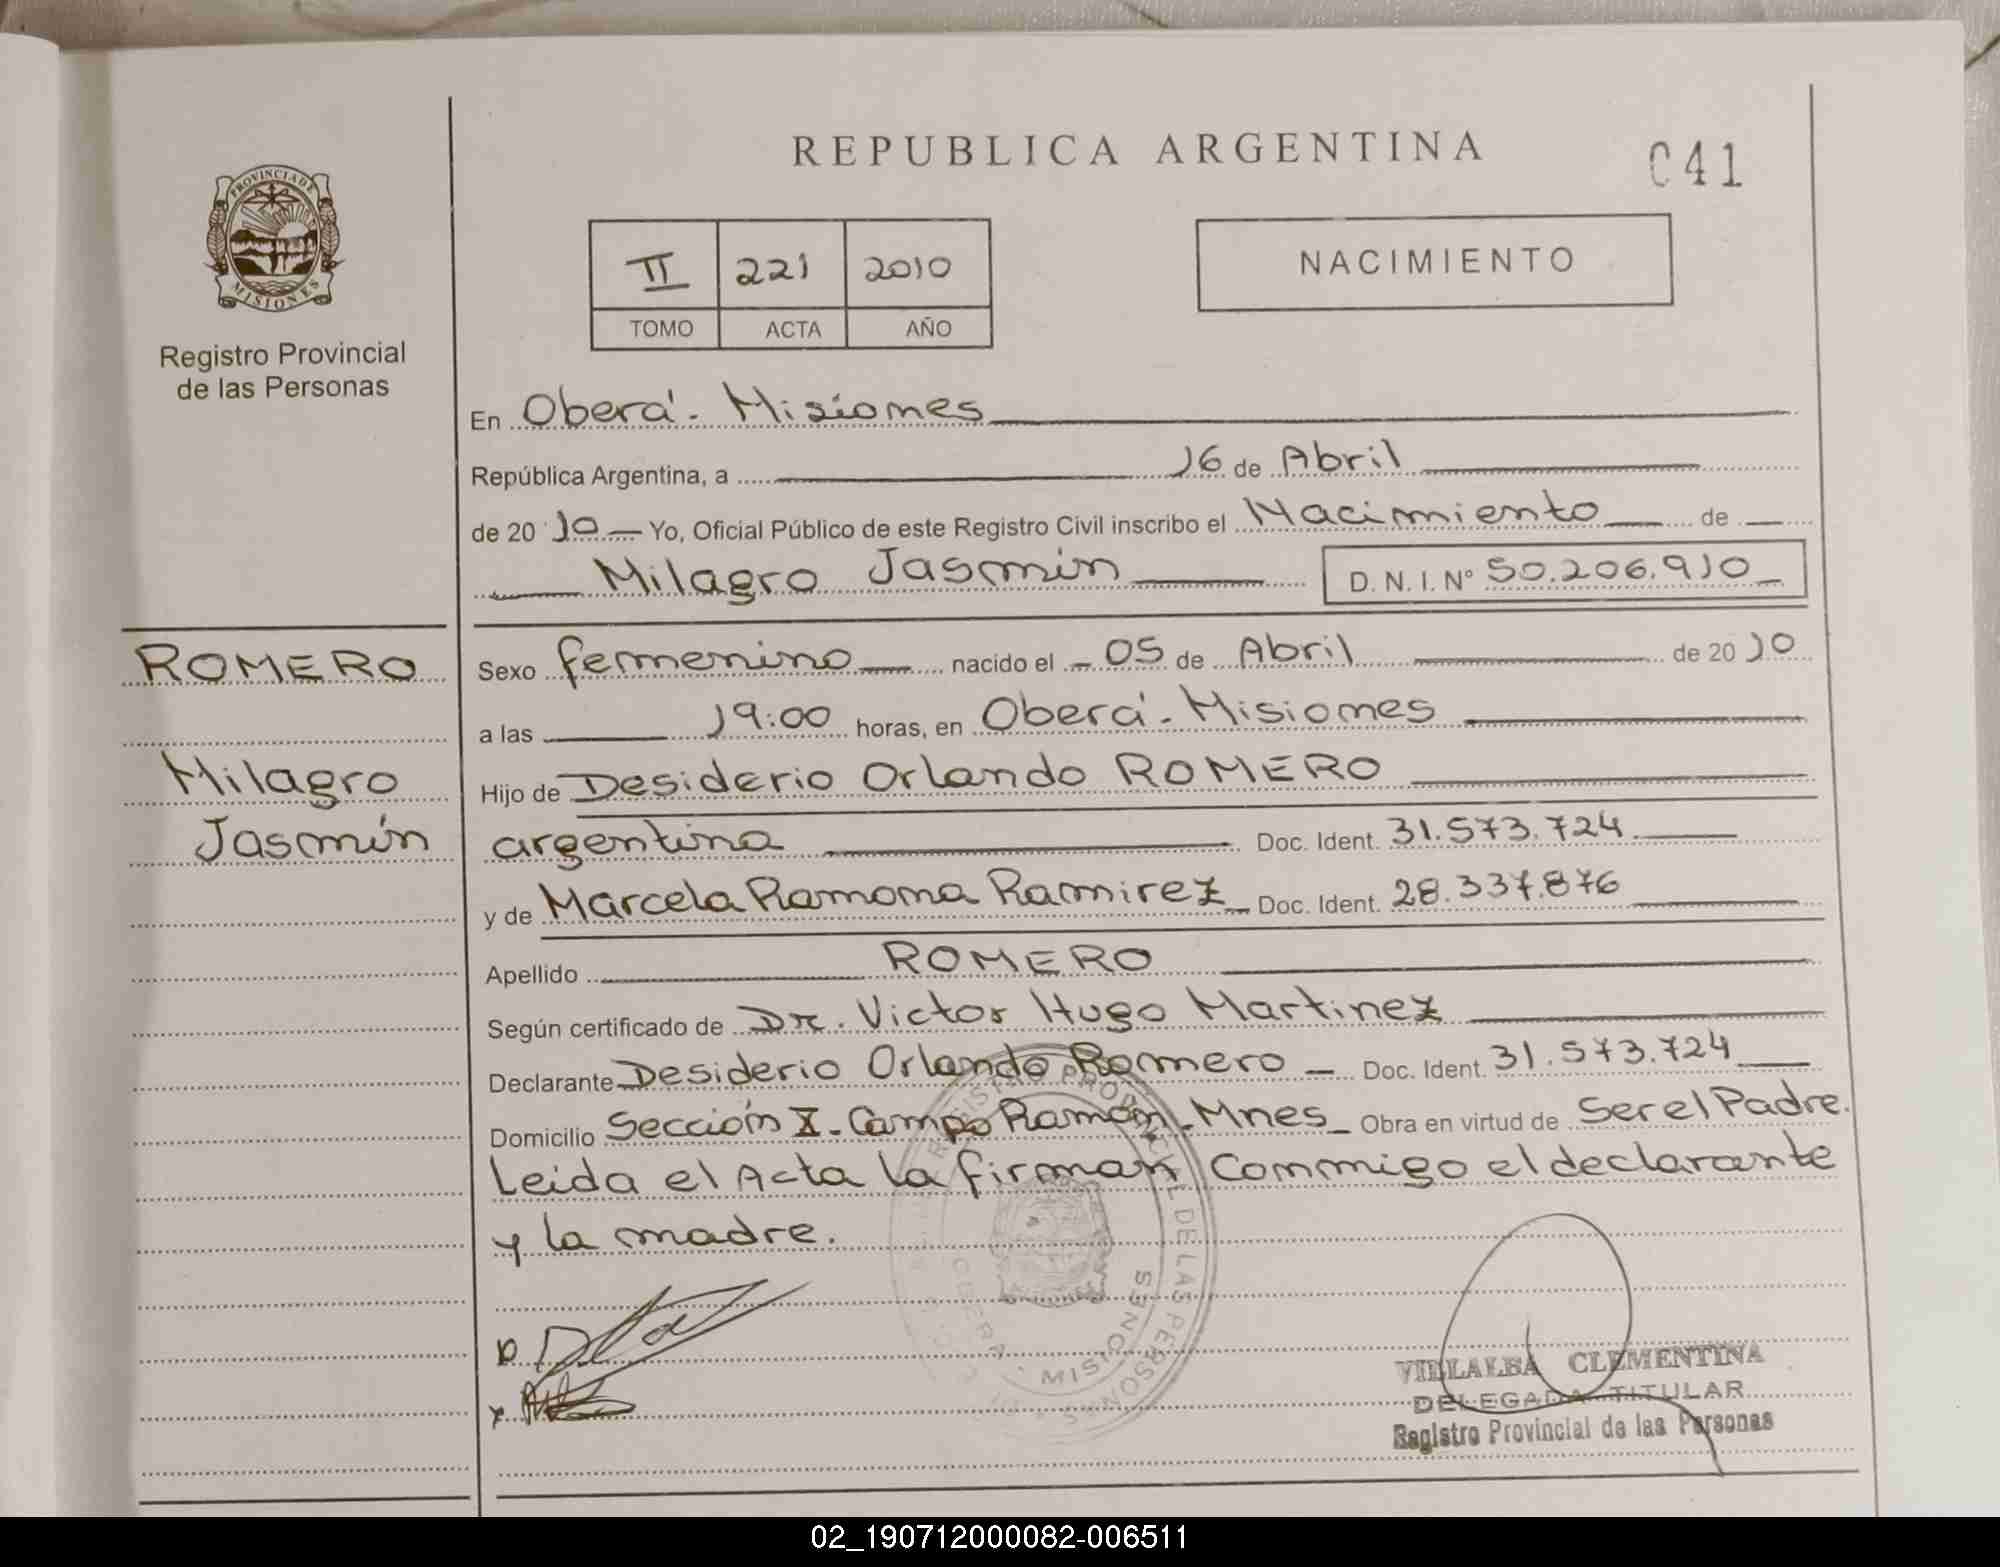 REPUBLICA ARGENTINA
041
PROVINCIA DE
MISIONES
Registro Provincial
de las Personas
II 221 2010
TOMO ACTA AÑO
NACIMIENTO
En Oberá - Misiones
República Argentina, a 16 de Abril
de 2010 Yo, Oficial Público de este Registro Civil inscribo el Nacimiento de
Milagro Jasmín D. N. I. N° 50.206.910
ROMERO
Milagro
Jasmín
Sexo femenino nacido el 05 de Abril de 2010
a las 19:00 horas, en Oberá - Misiones
Hijo de Desiderio Orlando ROMERO
argentina Doc. Ident. 31.573.724
y de Marcela Ramona Ramirez Doc. Ident. 28.337.876
Apellido ROMERO
Según certificado de Dr. Victor Hugo Martinez
Declarante Desiderio Orlando Romero Doc. Ident. 31.573.724
Domicilio Sección X - Campo Ramón - Mnes Obra en virtud de Ser el Padre.
Leida el Acta la firman Conmigo el declarante
y la madre.
REGISTRO PROVINCIAL DE LAS PERSONAS
MISIONES
VILLALBA CLEMENTINA
DELEGADA TITULAR
Registro Provincial de las Personas
02_190712000082-006511